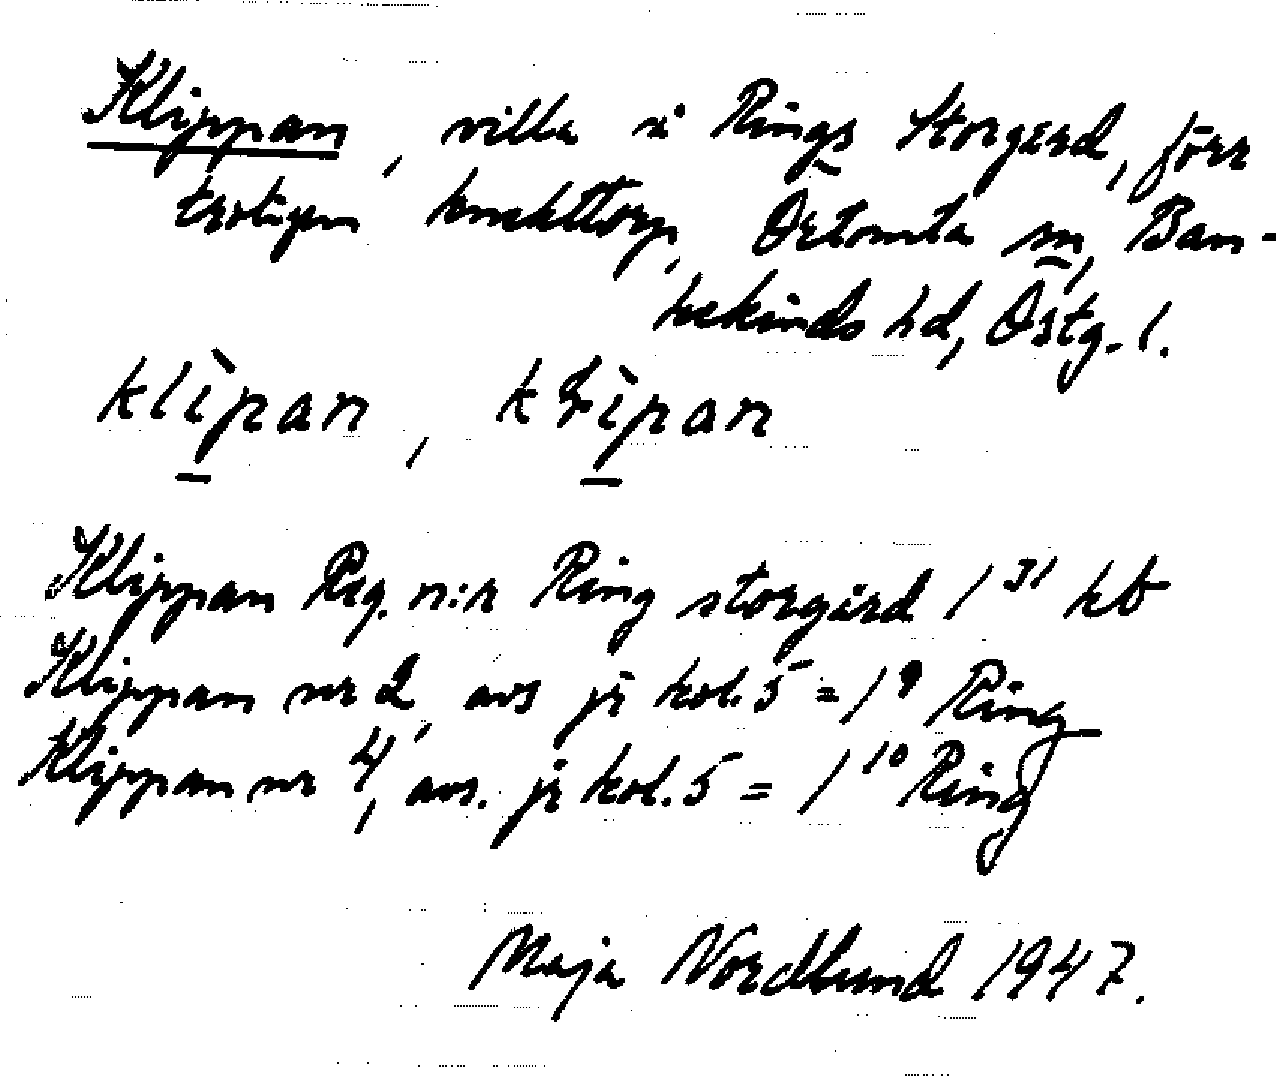 Klippan, villa å Rings Storgård, förr
troligen knekttorp, Örtomta sn, Ban-
kekinds hd, Östg. l.
klìpan, kłìpan
Klippan Reg. n:r Ring storgård 1³¹ kb
Klippan nr 2, avs jr kol. 5 = 1⁹ Ring
Klippan nr 4, avs. jr kol. 5 = 1¹⁰ Ring
Maja Nordlund 1947.